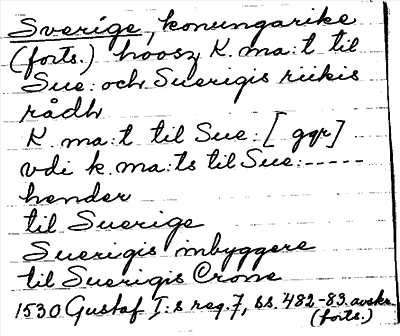 Sverige, konungarike
(forts.) hoosz K. ma:t til
Sue: och Suerigis riikis
rådh
K. ma:t til Sue: [ggr]
vdi k. ma:ts til Sue:-----
hender
til Suerige
Suerigis inbyggere
til Suerigis Crone
1530 Gustaf I:s reg. 7, ss. 482-83. avskr.
(forts.)